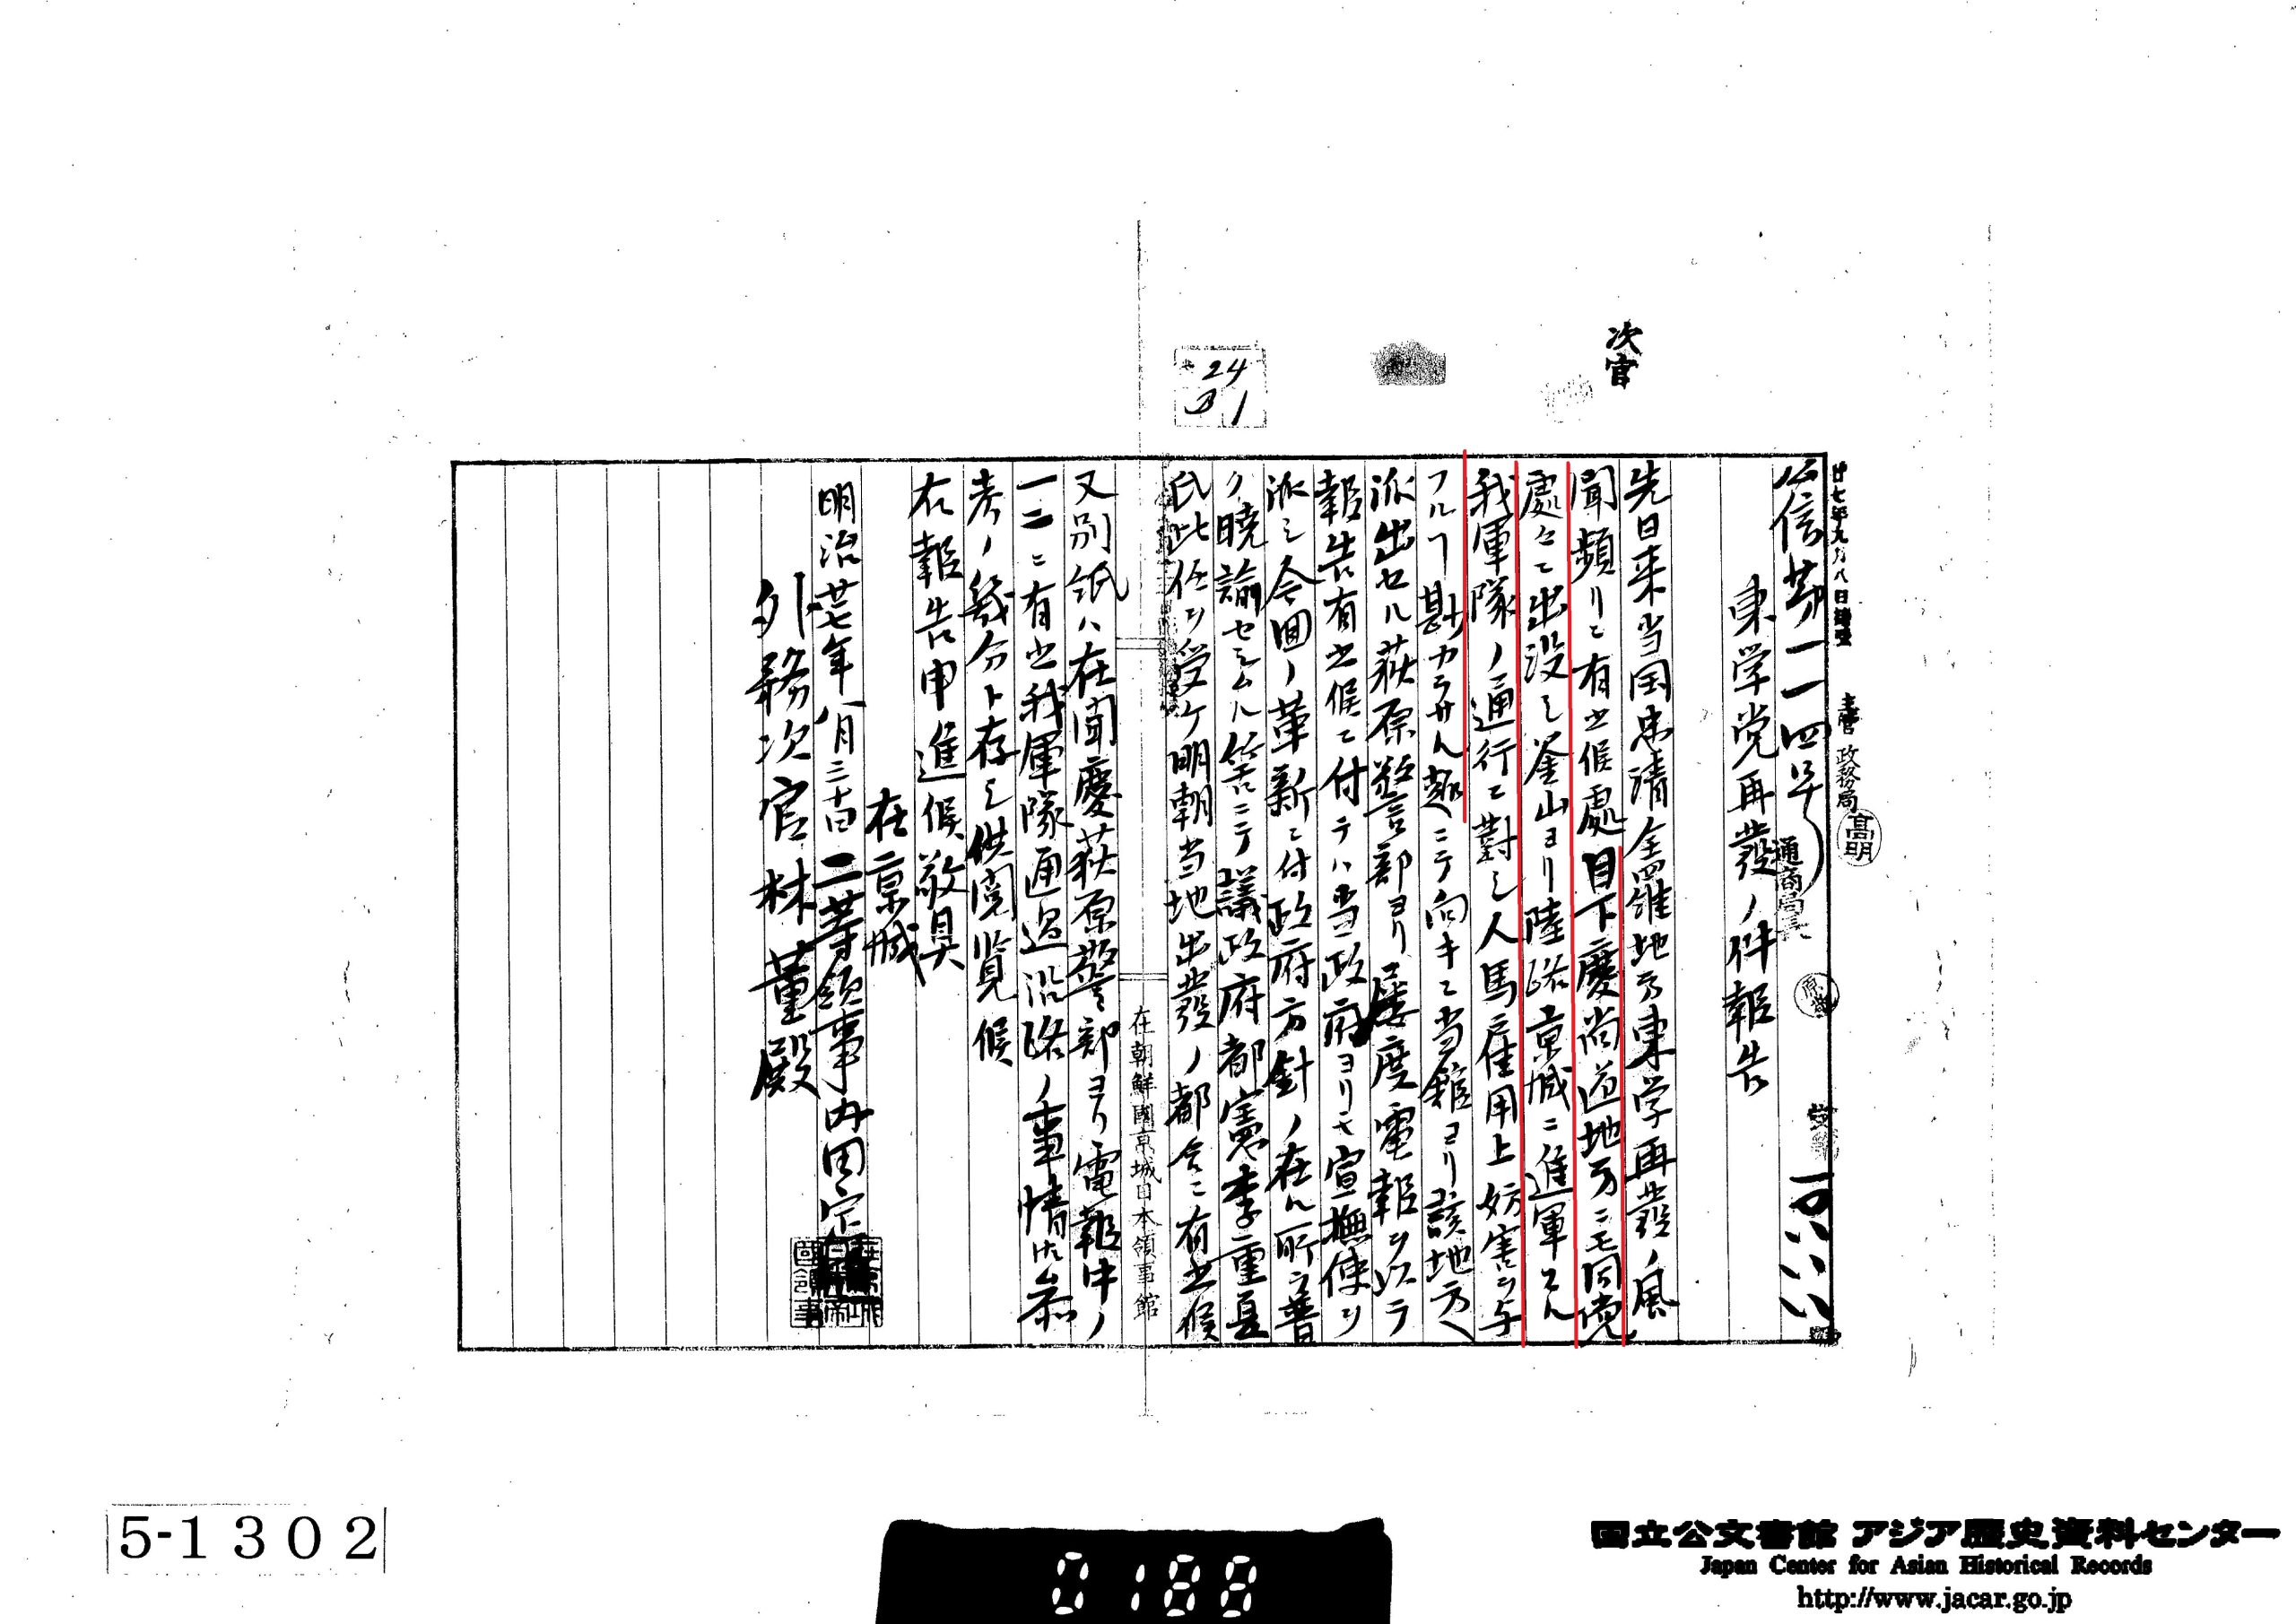 次官
24
1
廿七年九月八日接受
主管 政務局
高明
公信第一一四号
通商局長
東学党再發ノ件報告
先日来当国忠清全羅地方東学再發ノ風
聞頻リニ有之候處目下慶尚道地方ニモ同党
處々ニ出没シ釜山ヨリ陸路京城ニ進軍スル
我軍隊ノ通行ニ對シ人馬雇用上妨害ヲ与
フルヿ尠カラサル趣ニテ向キニ当館ヨリ該地方ヘ
派出セル荻原警部ヨリ屡度電報ヲ以テ
報告有之候ニ付テハ当政府ヨリモ宣撫使ヲ
派シ今回ノ革新ニ付政府方針ノ在ル所ヲ普
ク暁諭セシムル筈ニテ議政府都憲李重夏
氏此任ヲ受ケ明朝当地出發ノ都合ニ有之候
在朝鮮國京城日本領事館
又別紙ハ在聞慶荻原警部ヨリ電報中ノ
一二ニ有之我軍隊通過沿路ノ事情御参
考ノ幾分ト存シ供閲覧候
右報告申進候敬具
在京城
明治廿七年八月三十日 二等領事内田定槌
外務次官林董殿
5-1302
0188
国立公文書館 アジア歴史資料センター
Japan Center for Asian Historical Records
http://www.jacar.go.jp